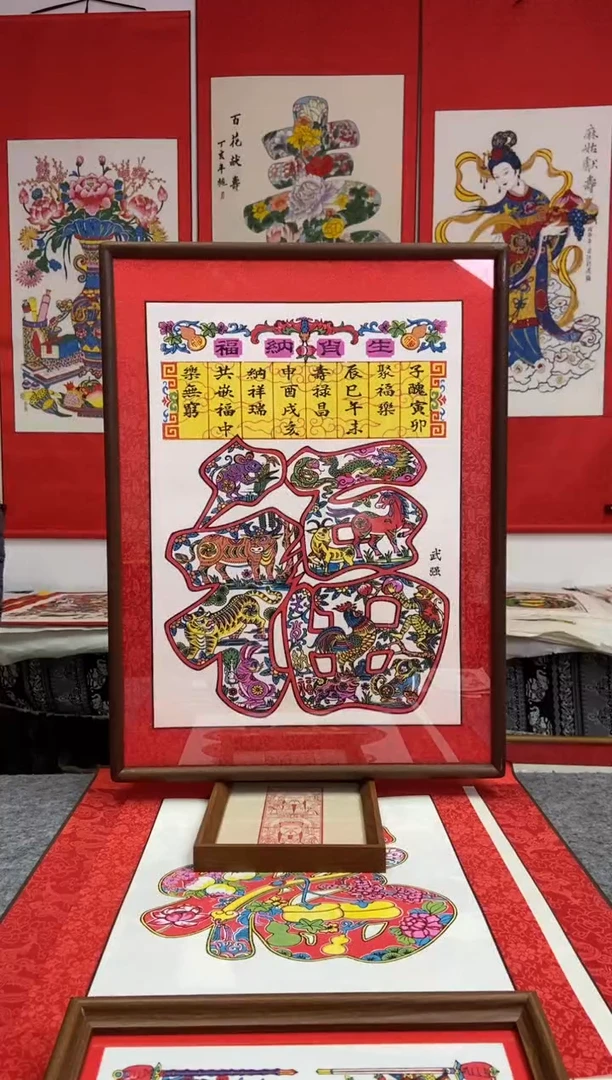 百花献壽
麻姑献壽
生肖納福
子醜寅卯
聚福樂
辰巳午未
壽禄昌
申酉戌亥
納祥瑞
共嵌福中
樂無窮
福
武强